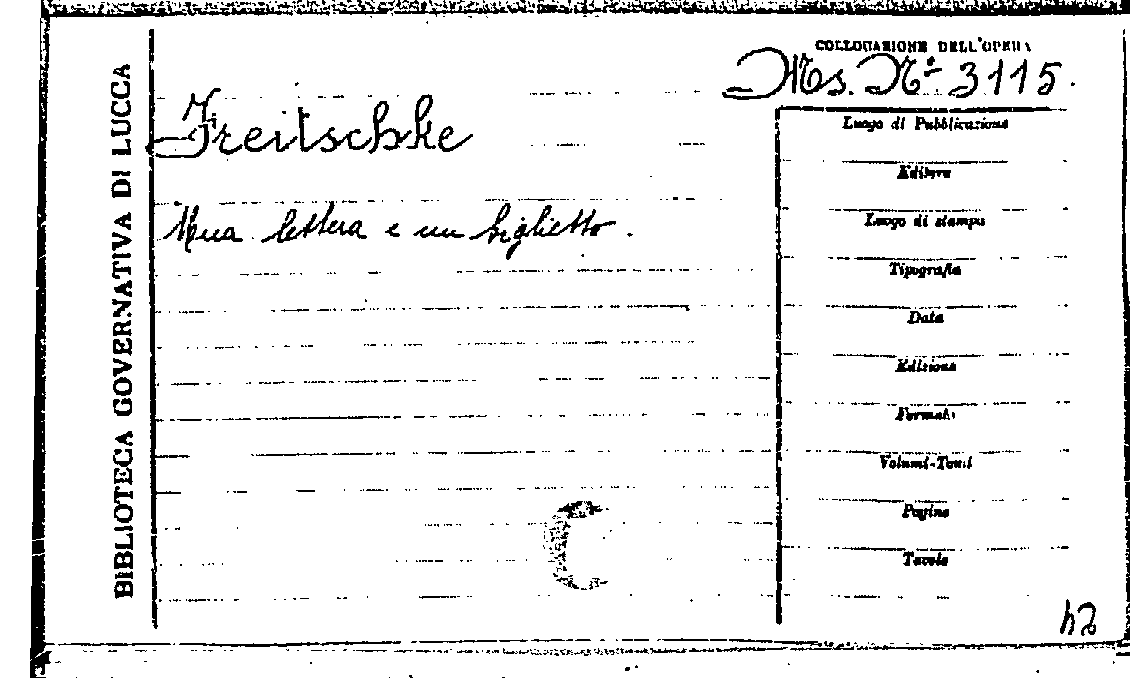 BIBLIOTECA GOVERNATIVA DI LUCCA
COLLOCAZIONE DELL'OPERA
Ms. Nº 3115.
Treitschke
Una lettera e un biglietto.
Luogo di Pubblicazione
Editore
Luogo di stampa
Tipografia
Data
Edizione
Formato
Volumi-Tomi
Pagine
Tavole
C